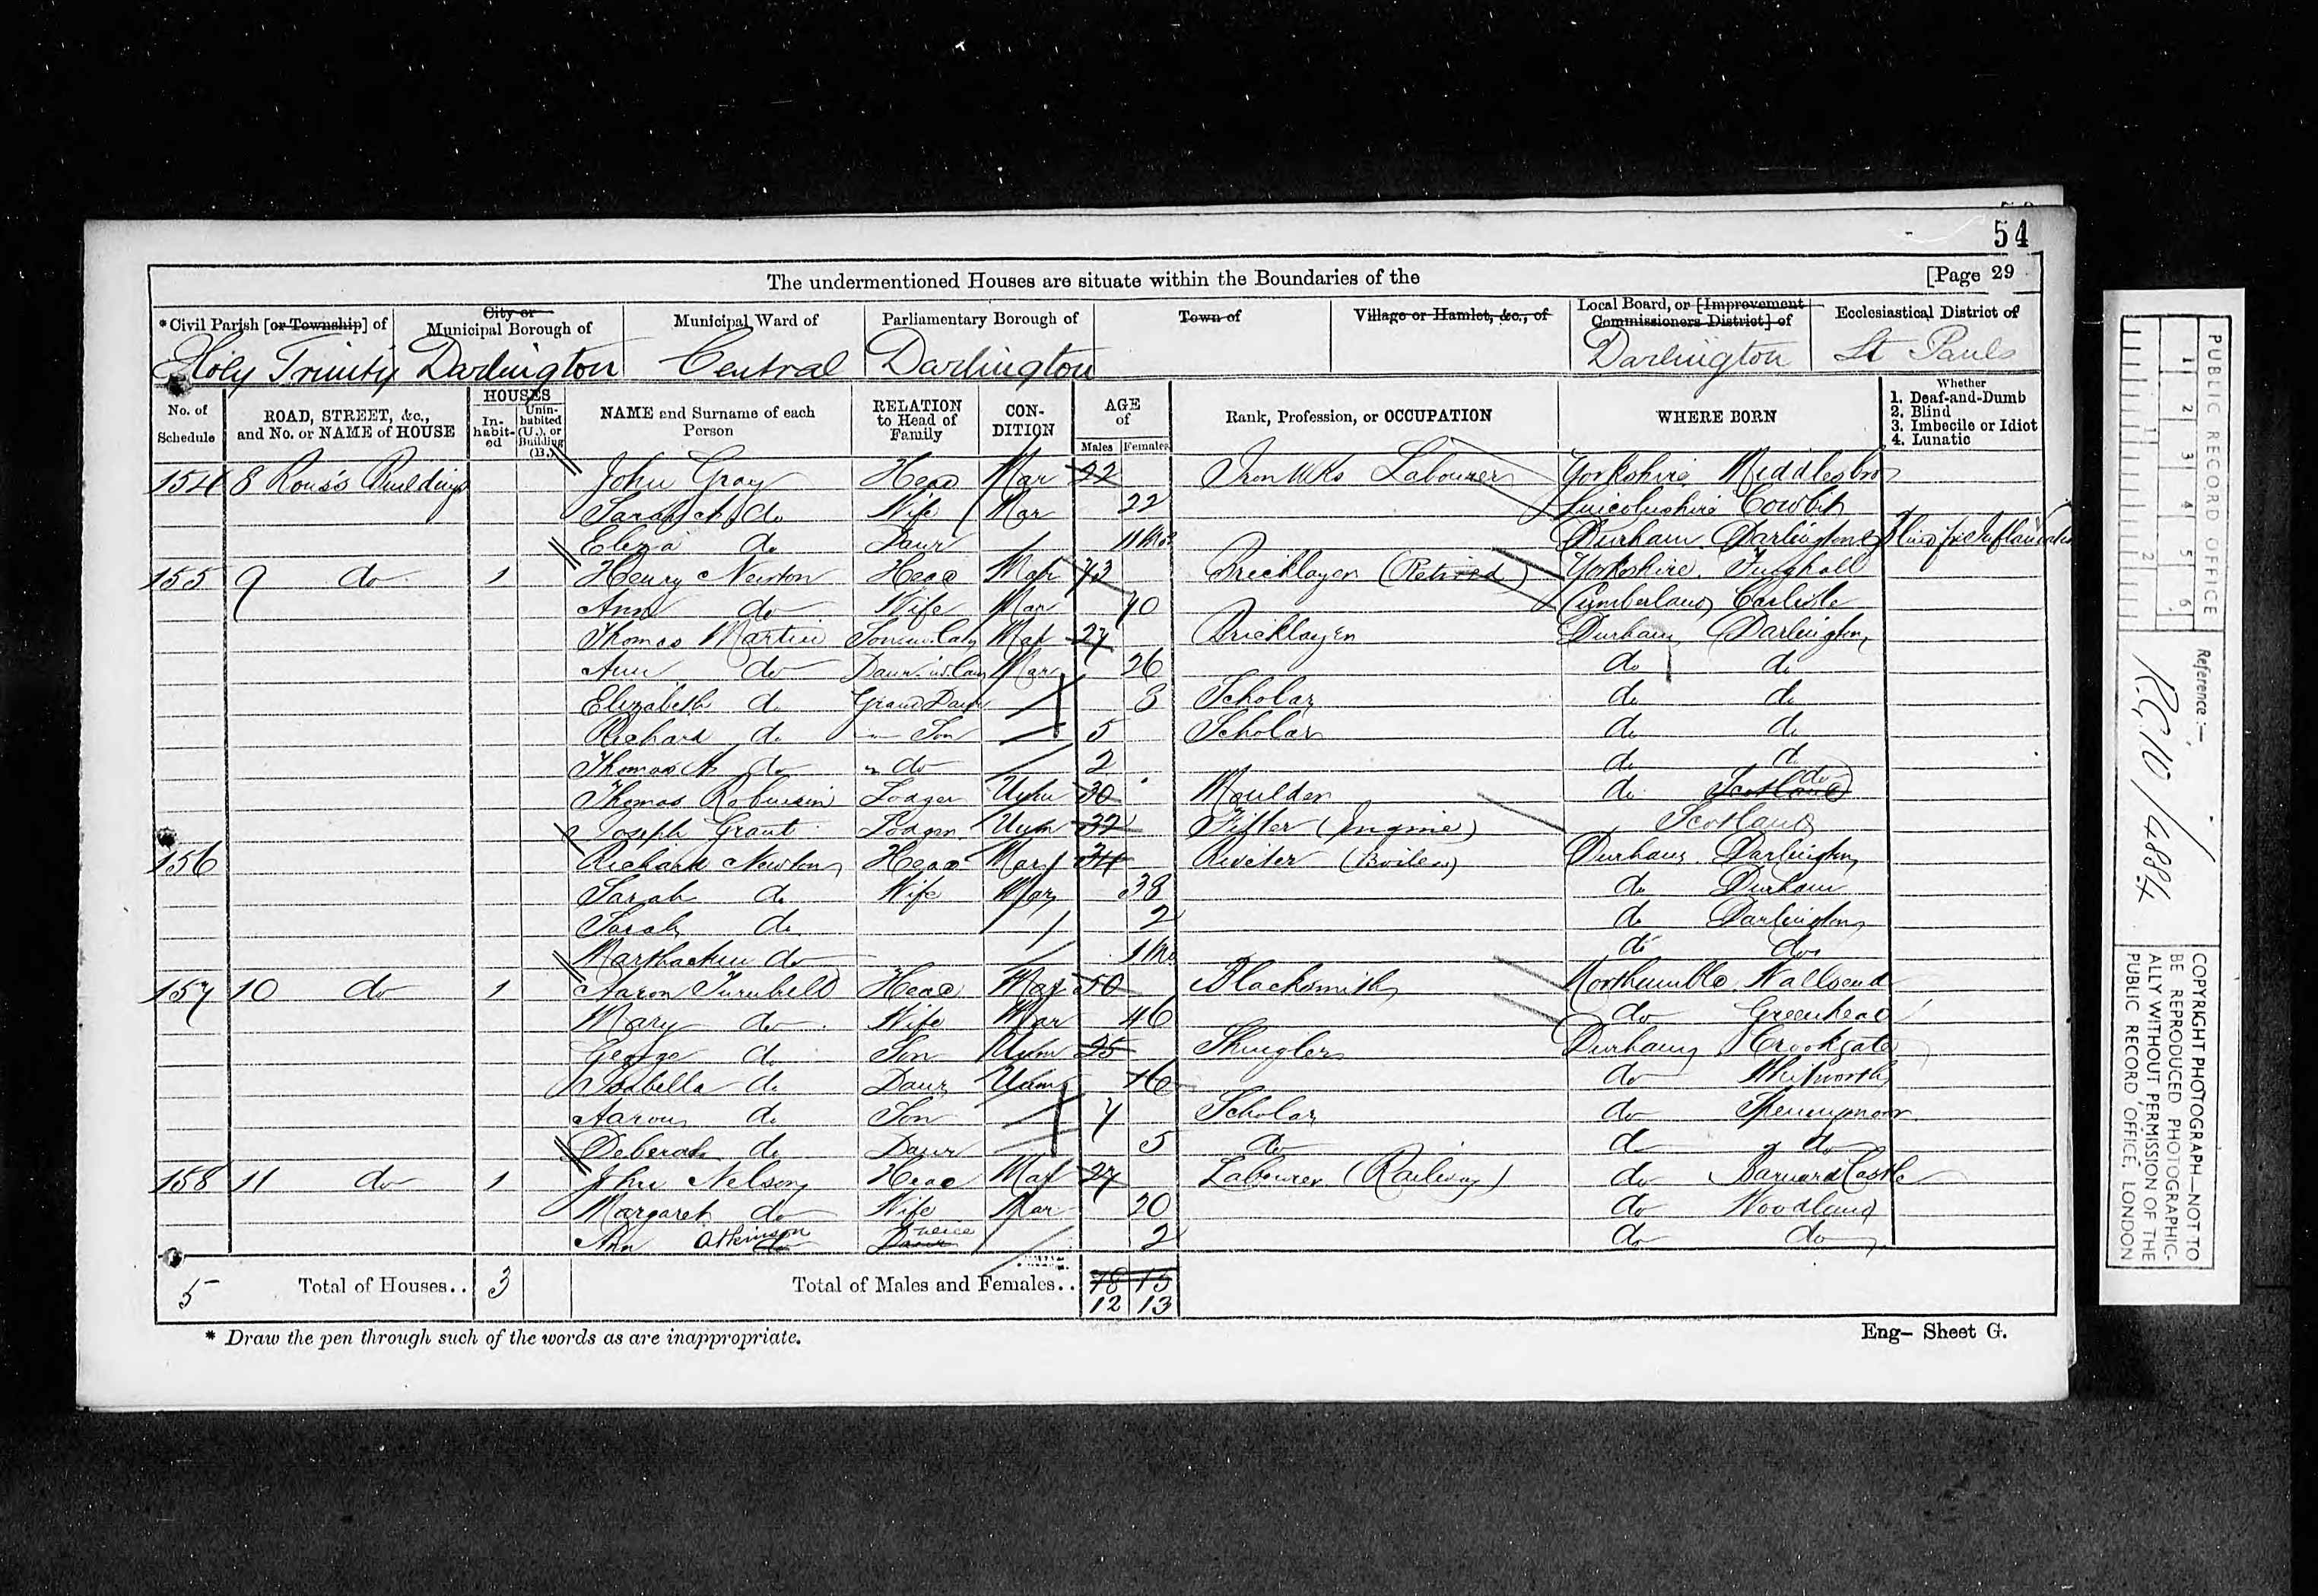 54
The undermentioned Houses are situate within the Boundaries of the [Page 29
*Civil Parish [or Township] of City or Municipal Borough of Municipal Ward of Parliamentary Borough of Town of Village or Hamlet, &c., of Local Board, or [Improvement Commissioners District] of Ecclesiastical District of
Holy Trinity Darlington Central Darlington Darlington St Pauls
No. of Schedule ROAD, STREET, &c., and No. or NAME of HOUSE HOUSES Inhabited Uninhabited (U.), or Building (B.) NAME and Surname of each Person RELATION to Head of Family CONDITION AGE of Males Females Rank, Profession, or OCCUPATION WHERE BORN Whether 1. Deaf-and-Dumb 2. Blind 3. Imbecile or Idiot 4. Lunatic
154 8 Buildings John Gray Head Mar 22 Iron Wks Labourer Yorkshire Middlesbro
Sarah do Wife Mar 22 Lincolnshire Cowbit
Eliza do Daur 11 Mos Durham Darlington
155 9 do 1 Henry Newton Head Mar 73 Bricklayer (Retired) Yorkshire
Ann do Wife Mar 70 Cumberland Carlisle
Thomas Martin Son in Law Mar 27 Bricklayer Durham Darlington
Ann do Daur in Law Mar 26 do do
Elizabeth do Grand Daur 8 Scholar do do
Richard do " Son 5 Scholar do do
Thomas do " do 2 do do
Thomas Robinson Lodger Unm 30 Moulder do Scotland do
Joseph Grant Lodger Unm 32 Fitter (Engine) Scotland
156 Richard Newton Head Mar 34 Riveter (Boiler) Durham Darlington
Sarah do Wife Mar 38 do Durham
Sarah do 2 do Darlington
Martha Ann do 1 Mo do do
157 10 do 1 Aaron Turnbull Head Mar 50 Blacksmith Northumbld Wallsend
Mary do Wife Mar 46 do Greenhead
George do Son Unm 25 Shingler Durham Crookgate
Isabella do Daur Unm 16 do Whitworth
Aaron do Son 7 Scholar do Spennymoor
Deborah do Daur 5 do do do
158 11 do 1 John Nelson Head Mar 27 Labourer (Railway) do Barnard Castle
Margaret do Wife Mar 20 do Woodland
Ann Atkinson do Daur niece 2 do do
5 Total of Houses.. 3 Total of Males and Females.. 18 15
12 13
* Draw the pen through such of the words as are inappropriate. Eng- Sheet G.
PUBLIC RECORD OFFICE
1 2 3 4 5 6
1 2
Reference :-
R.G. 10/4884
COPYRIGHT PHOTOGRAPH—NOT TO
BE REPRODUCED PHOTOGRAPHIC-
ALLY WITHOUT PERMISSION OF THE
PUBLIC RECORD OFFICE, LONDON